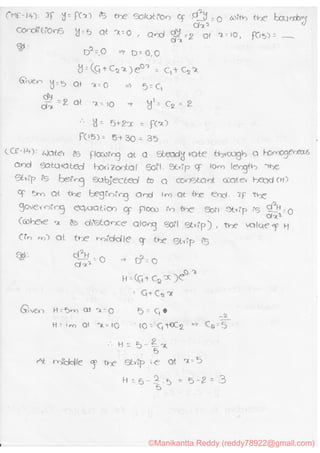 (ME-14): If y = f(x) is the solution of d²y/dx² = 0 with the boundary
conditions y=5 at x=0, and dy/dx = 2 at x=10, f(15) = __
Sol: D²=0 ⇒ D=0,0
y = (C₁+C₂x)e⁰ˣ = C₁+C₂x
Given y=5 at x=0 ⇒ 5=C₁
dy/dx = 2 at x=10 ⇒ y¹ = C₂ = 2
∴ y = 5+2x = f(x)
f(15) = 5+30 = 35
(CE-14): Water is flowing at a steady rate through a homogeneous
and saturated horizontal soil strip of 10m length. The
strip is being subjected to a constant water head (H)
of 5m at the beginning and 1m at the end. If the
governing equation of flow in the soil strip is d²H/dx² = 0
(where x is distance along soil strip), the value of H
(in m) at the middle of the strip is
Sol: d²H/dx² = 0 ⇒ D²=0
H = (C₁+C₂x)e⁰·ˣ
= C₁+C₂x
Given H=5m at x=0 5=C₁
H=1m at x=10 10=C₁+10C₂ ⇒ C₂ = -2/5
∴ H = 5 - 2/5 x
At middle of the strip i.e at x=5
H = 5 - 2/5 · 5 = 5-2 = 3
©Manikantta Reddy (reddy78922@gmail.com)